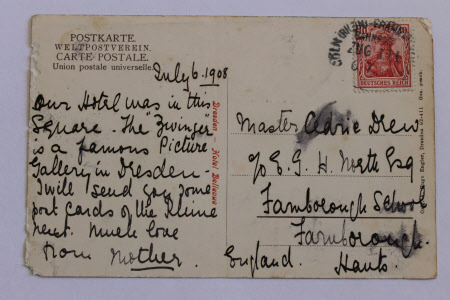 POSTKARTE.
WELTPOSTVEREIN.
CARTE POSTALE.
Union postale universelle.
July 6. 1908
Our Hotel was in this
Square. The "Zwinger"
is a famous Picture
Gallery in Dresden -
I will send you some
post cards of the Rhine
next. Much love
from Mother.
Dresden - Hotel Bellevue
DEUTSCHES REICH
Master Cedric Drew
c/o E. G. H. North Esq
Farnborough School
Farnborough.
Hants.
England.